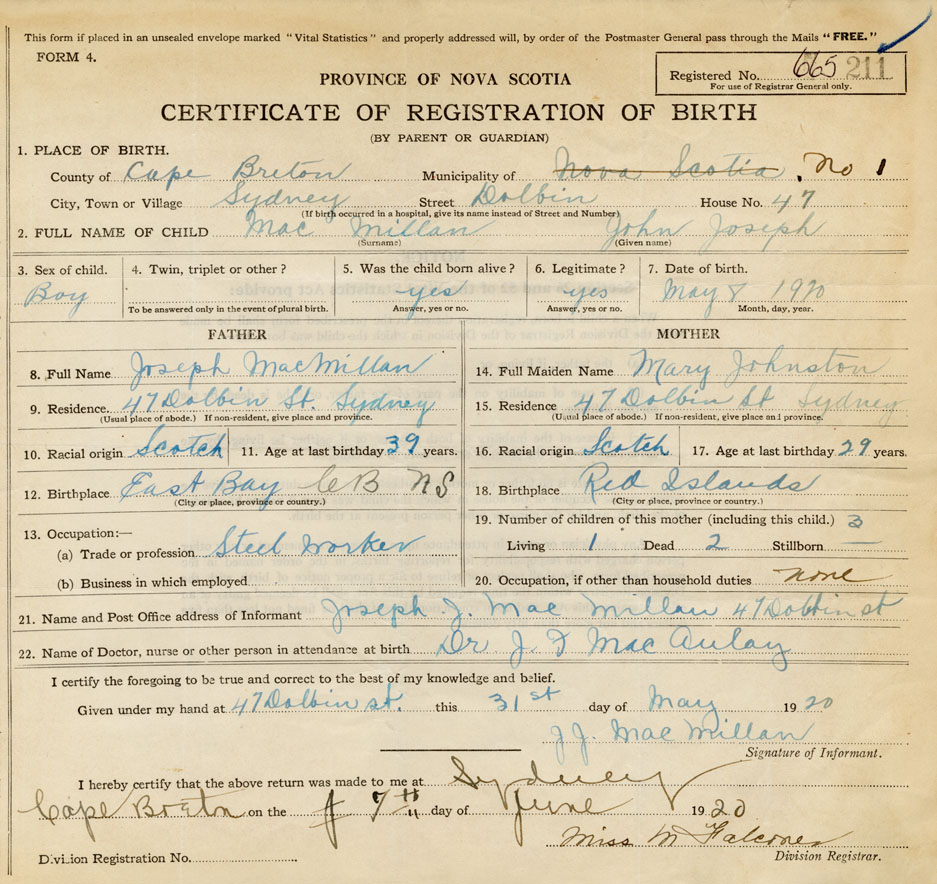 This form if placed in an unsealed envelope marked "Vital Statistics" and properly addressed will, by order of the Postmaster General pass through the Mails "FREE."
FORM 4.
Registered No. 665 211
For use of Registrar General only.
PROVINCE OF NOVA SCOTIA
CERTIFICATE OF REGISTRATION OF BIRTH
(BY PARENT OR GUARDIAN)
1. PLACE OF BIRTH.
County of Cape Breton Municipality of Nova Scotia . No 1
City, Town or Village Sydney Street Dolbin House No. 47
(If birth occurred in a hospital, give its name instead of Street and Number)
2. FULL NAME OF CHILD Mac Millan John Joseph
(Surname) (Given name)
3. Sex of child. 4. Twin, triplet or other? 5. Was the child born alive? 6. Legitimate? 7. Date of birth.
Boy yes yes May 8 1920
To be answered only in the event of plural birth. Answer, yes or no. Answer, yes or no. Month, day, year.
FATHER MOTHER
8. Full Name Joseph MacMillan 14. Full Maiden Name Mary Johnston
9. Residence. 47 Dolbin St. Sydney 15. Residence 47 Dolbin St Sydney
(Usual place of abode.) If non-resident, give place and province. (Usual place of abode.) If non-resident, give place and province.
10. Racial origin Scotch 11. Age at last birthday 39 years. 16. Racial origin Scotch 17. Age at last birthday 29 years.
12. Birthplace East Bay CB NS 18. Birthplace Red Islands
(City or place, province or country.) (City or place, province or country.)
13. Occupation:— 19. Number of children of this mother (including this child.) 3
(a) Trade or profession Steel Worker Living 1 Dead 2 Stillborn —
(b) Business in which employed 20. Occupation, if other than household duties none
21. Name and Post Office address of Informant Joseph J. Mac Millan 47 Dobbin st
22. Name of Doctor, nurse or other person in attendance at birth Dr J. F MacAulay
I certify the foregoing to be true and correct to the best of my knowledge and belief.
Given under my hand at 47 Dolbin st. this 31st day of May 1920
J J. Mac Millan
Signature of Informant.
I hereby certify that the above return was made to me at Sydney
Cape Breton on the 7th day of June 1920
Miss M Falconer
Division Registration No. Division Registrar.